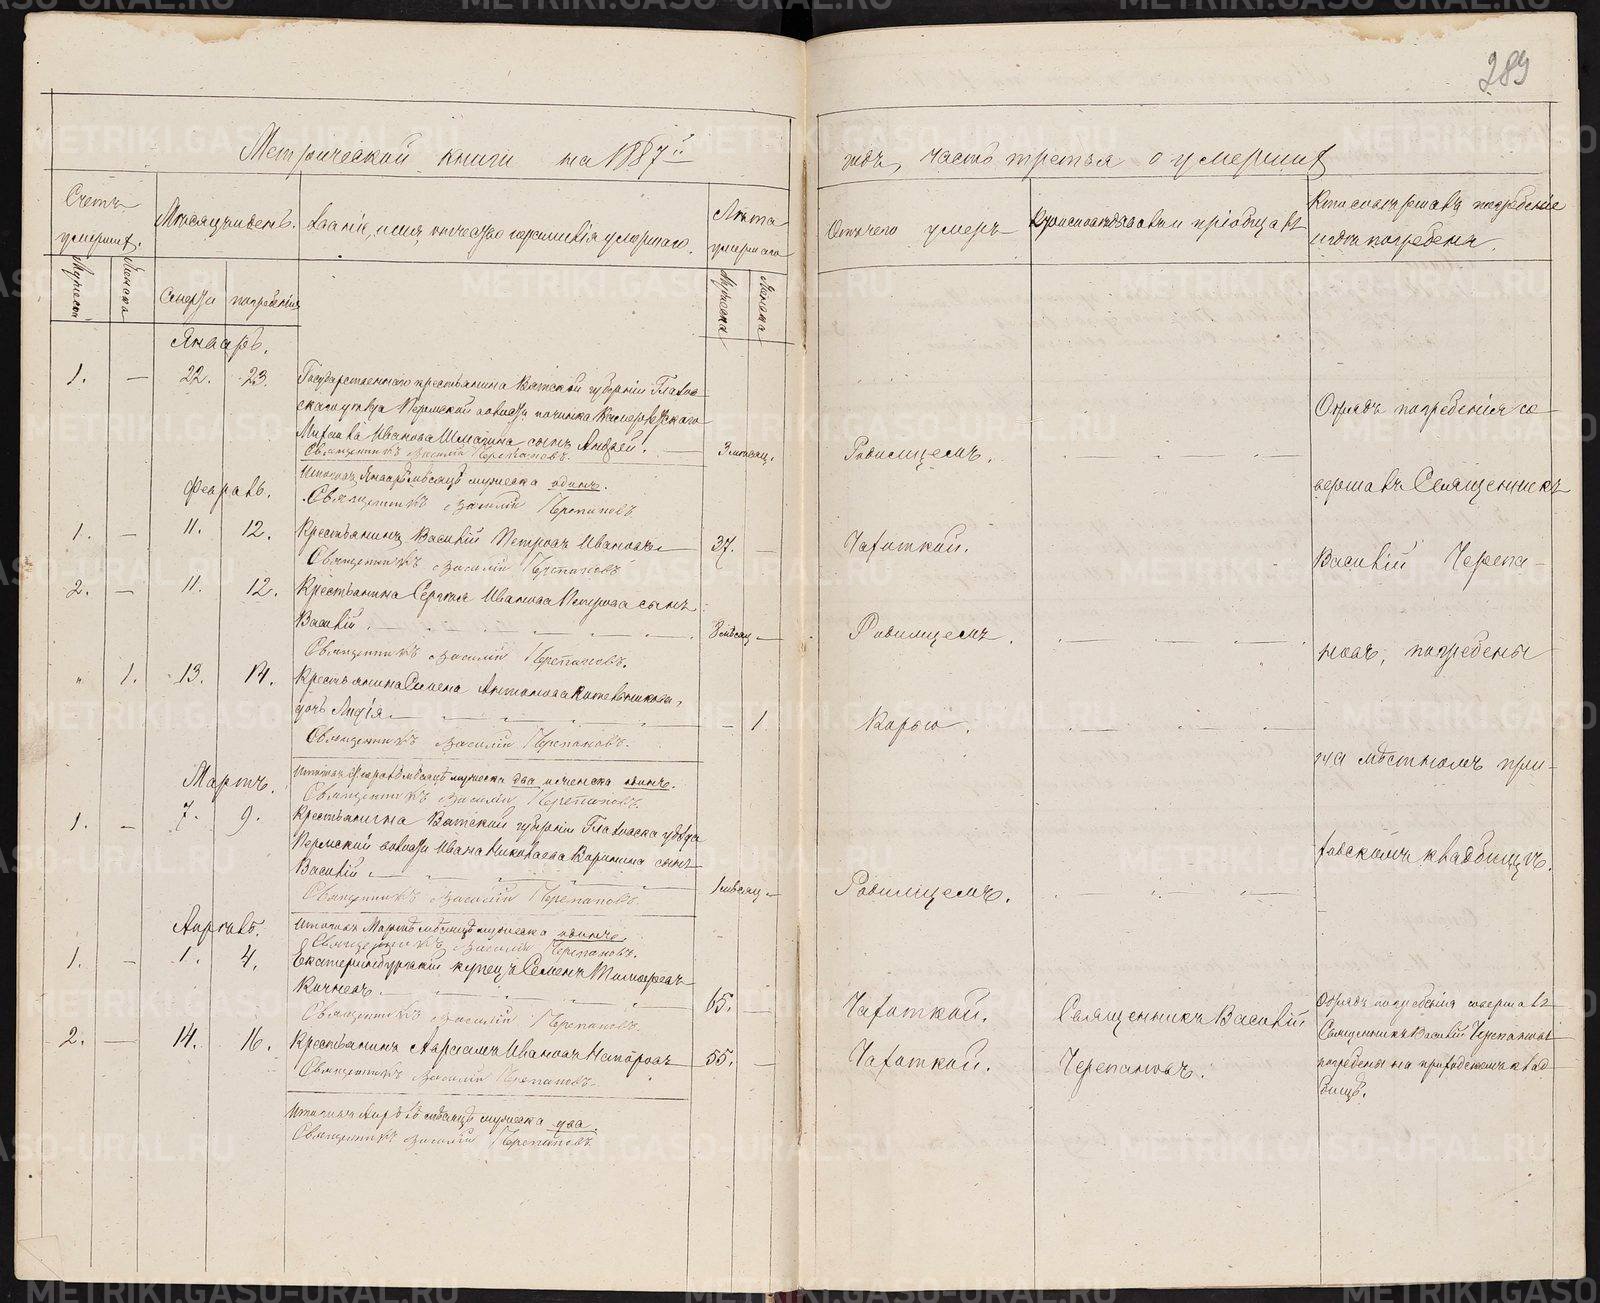 289
Метрической книги на 1887й
годъ, часть третья о умершихъ
Счетъ умершихъ.
Мѣсяцъ и день.
Званіе, имя, отчество и фамилія умершаго.
Лѣта умершаго
Отъ чего умеръ
Кто исповѣдывалъ и пріобщалъ
Кто совершалъ погребеніе и гдѣ погребены.
Мужеска
Женска
смерти
погребенія
Мужеска
Женска
Январь.
1. — 22. 23.
Государственнаго крестьянина Вятской губерніи Глазов-
скаго уѣзда Пермской волости починка
Ивана Шмагина сынъ Андрей.
3 мѣсяц.
Родимцемъ.
Священникъ Василій Черепановъ.
Итого въ Январѣ мѣсяцѣ мужеска одинъ.
Священникъ Василій Черепановъ
Февраль.
1. — 11. 12.
Крестьянинъ Василій Петровъ Ивановъ
37. —
Чахоткой.
Священникъ Василій Черепановъ
2. — 11. 12.
Крестьянина Сергѣя Иванова Петрова сынъ
Василій.
3 мѣсяц —
Родимцемъ.
Священникъ Василій Черепановъ.
" 1. 13. 14.
Крестьянина Семена Антонова Котельникова
дочь Лидія
— 1
Корью.
Священникъ Василій Черепановъ.
Итого въ Февралѣ мѣсяцѣ мужеска два и женска одинъ.
Священникъ Василій Черепановъ.
Мартъ.
1. — 7. 9.
Крестьянина Вятской губерніи Глазовска уѣзда
Пермской волости Ивана Николаева Корепина сынъ
Василій.
1 мѣсяц —
Родимцемъ.
Священникъ Василій Черепановъ.
Итого въ Мартѣ мѣсяцѣ мужеска одинъ
Священникъ Василій Черепановъ.
Апрѣль.
1. — 1. 4.
Екатеринбургскій купецъ Семенъ Тимофеевъ
Кочневъ.
65. —
Чахоткой.
Священникъ Василій
Священникъ Василій Черепановъ.
2. — 14. 16.
Крестьянинъ Варламъ Ивановъ
55. —
Чахоткой.
Черепановъ.
Священникъ Василій Черепановъ.
Итого въ Апрѣлѣ мѣсяцѣ мужеска два.
Священникъ Василій Черепановъ.
Обрядъ погребенія со-
вершалъ Священникъ
Василій Черепа-
новъ, погребены
на мѣстномъ при-
ходскомъ кладбищѣ.
Обрядъ погребенія совершалъ
Священникъ Василій Черепановъ
погребены на приходскомъ клад-
бищѣ.
METRIKI.GASO-URAL.RU